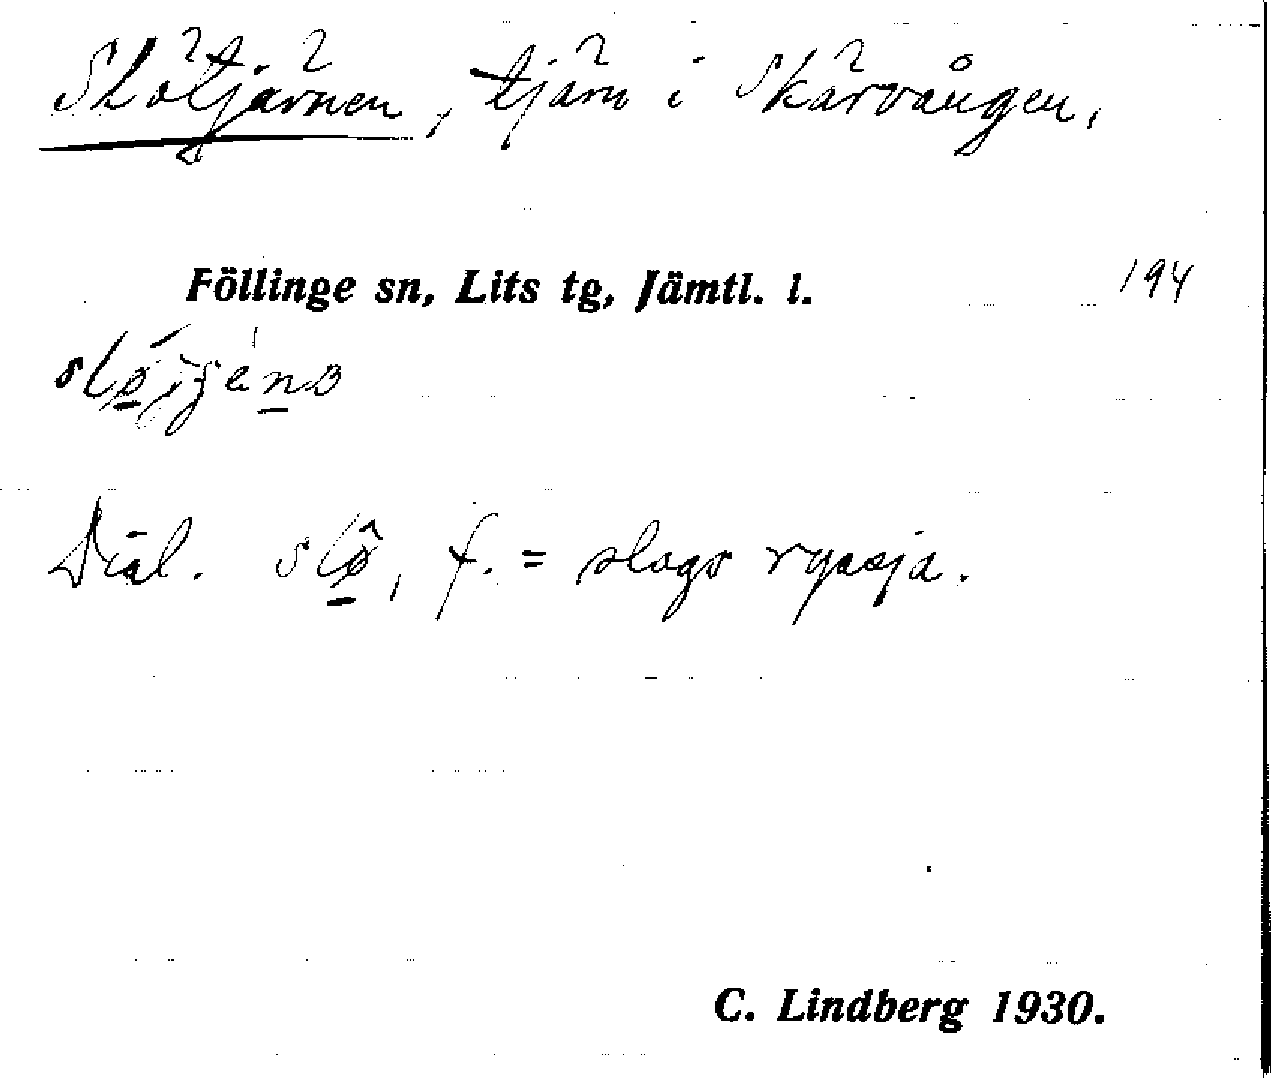 Slötjärnen, tjärn i Skärvången,
Föllinge sn, Lits tg, Jämtl. l. 194
Dial. slø̂, f. = slags ryssja.
C. Lindberg 1930.